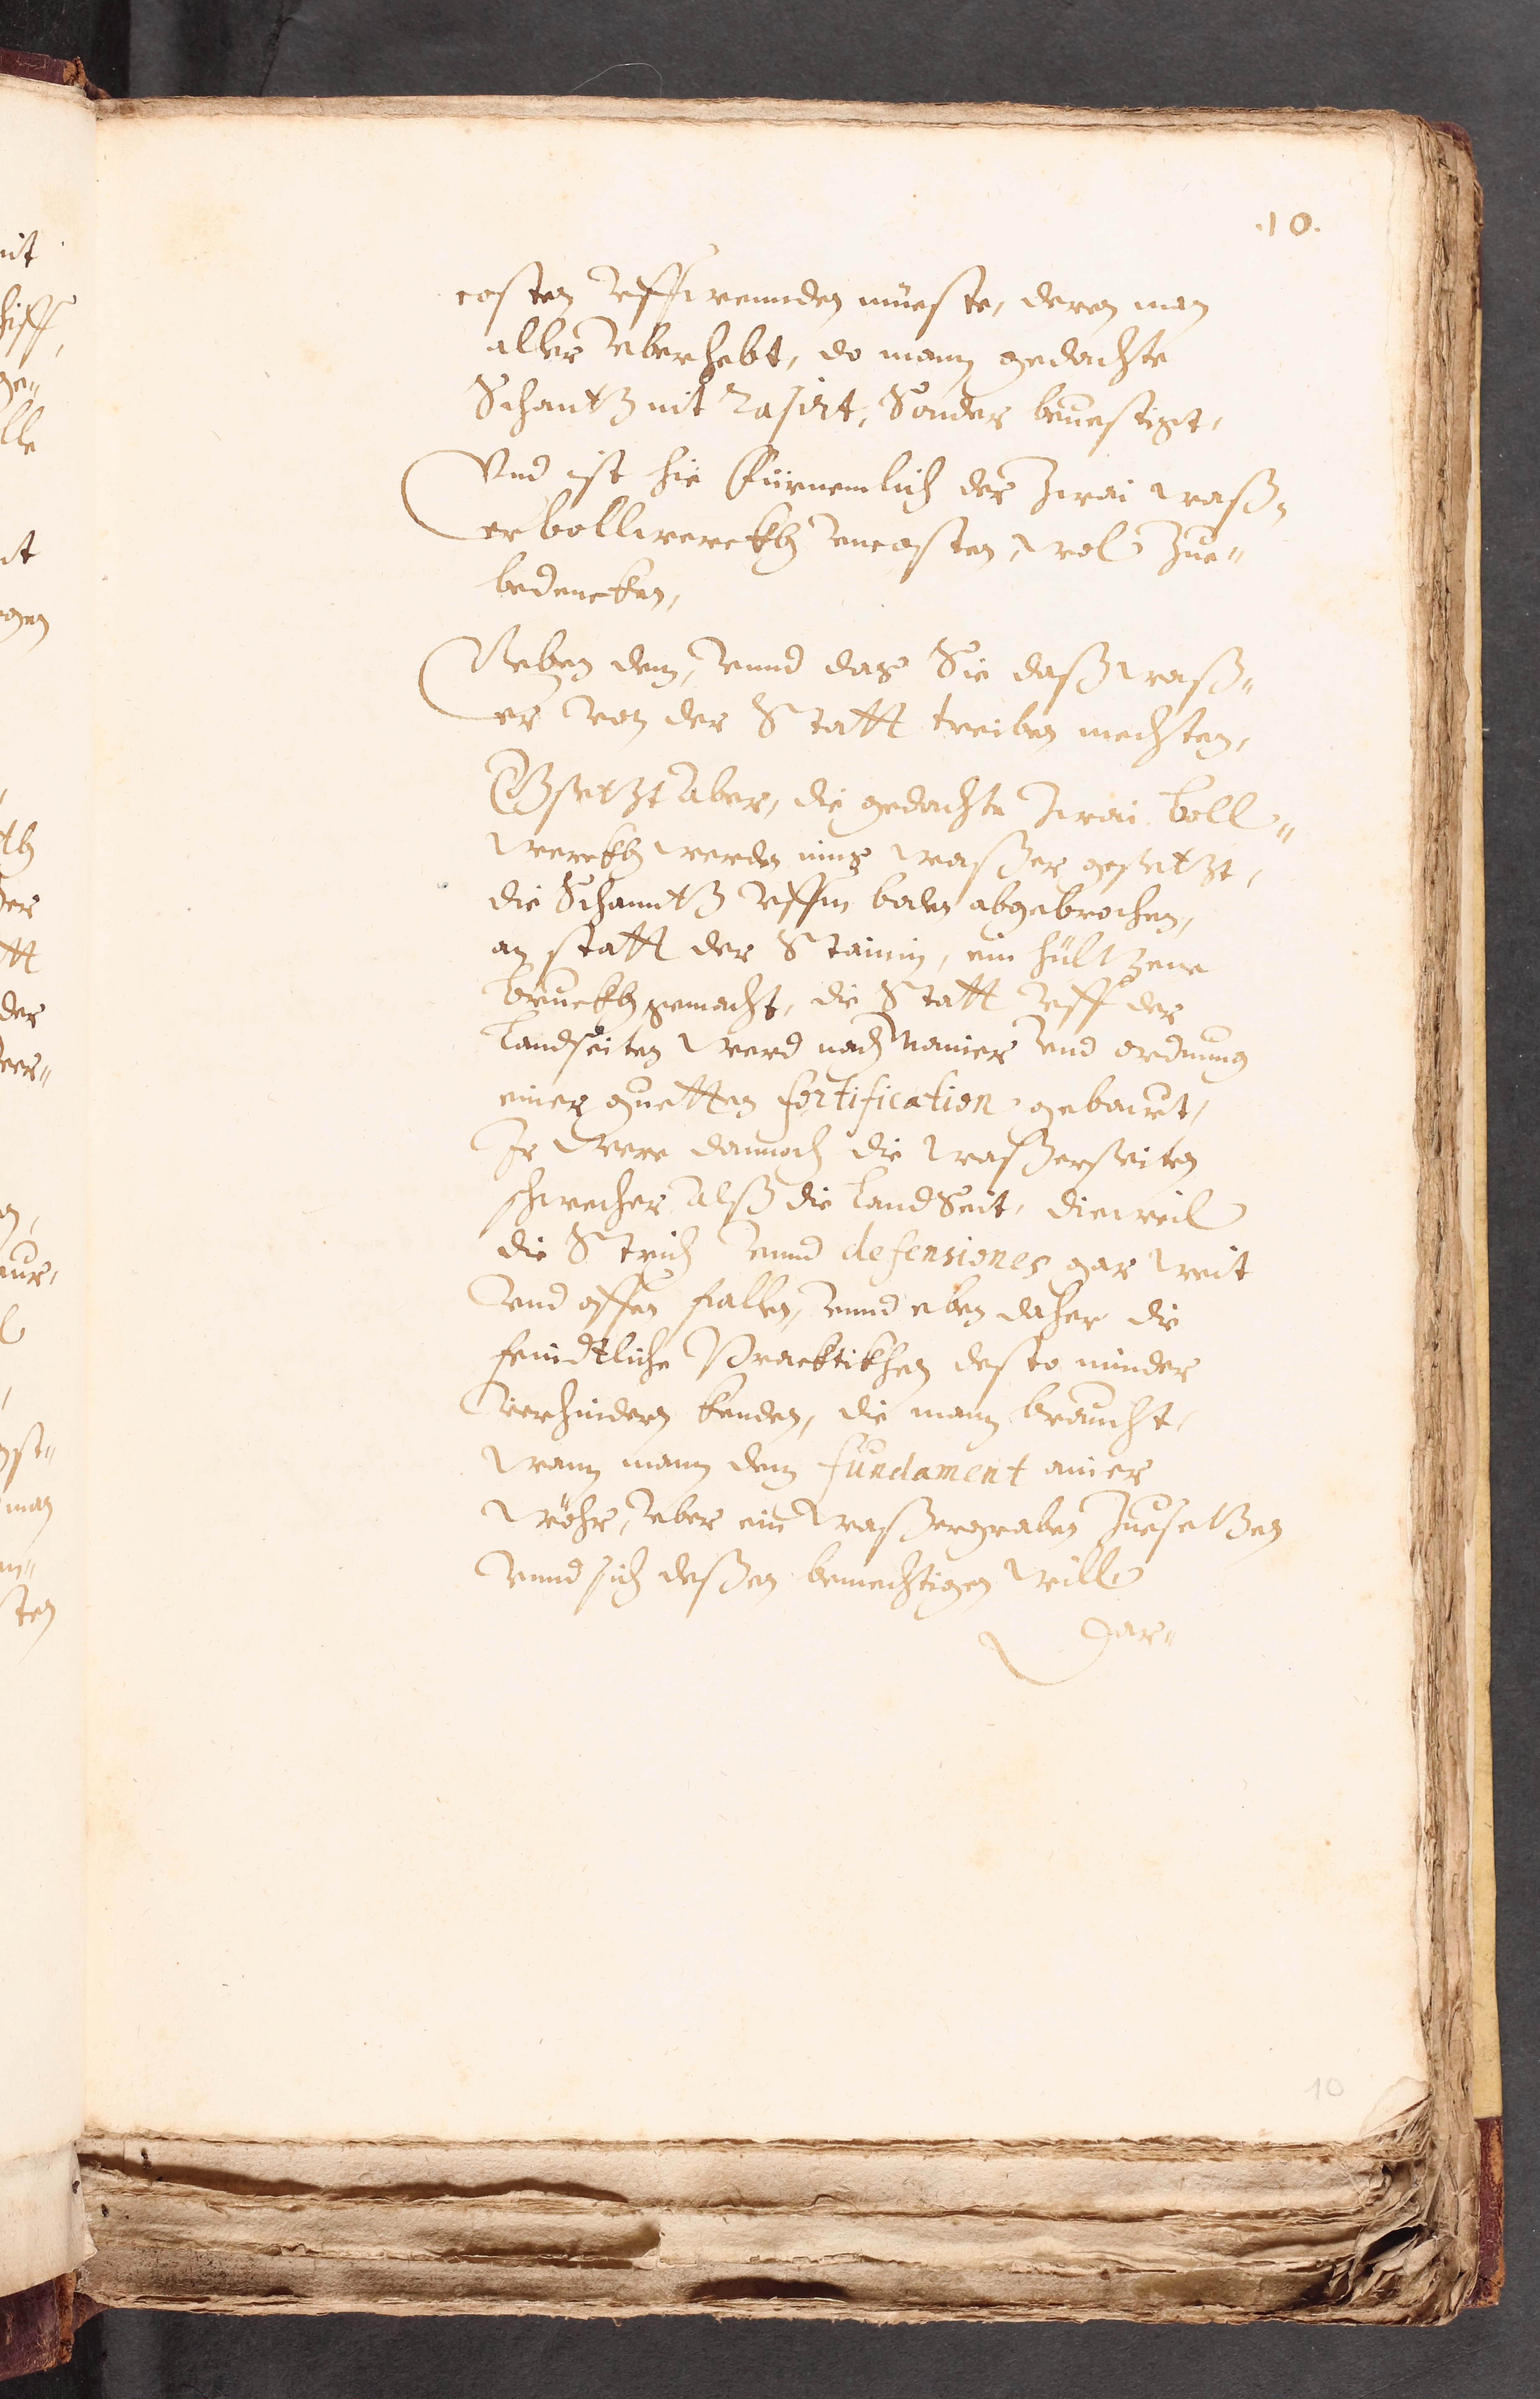 .10.
costen vffwennden müeste, deren man
aller vberhebt, do mann gedachte
Schantz nit Rasirt, Sonder beuestigt,
Vnd ist hie fürnemlich der Zwai waß-
er bollwerckh vncosten, wol zue-
bedencken,
Neben dem, vnnd das Sie daß waß-
er von der Statt treiben mechten,
Gsetzt aber, die gedachte Zwai boll-
werckh werden ins waßer gesetzt,
die Schanntz vffm boden abgebrochen,
an statt der Stainin, ein hültzene
bruckh gemacht, die Statt vff der
Landseiten werd nach Manier vnd ordnung
einer guetten fortification gebawt,
Ir were dannoch die waßerseiten
schwecher alß die LandSeit, dieweil
die Strich vnnd defensiones gar weit
vnd offen fallen, vnnd eben daher die
feindtliche Pracktikhen desto minder
verhindern kenden, die mann braucht,
wann mann dem fundament ainer
wöhr, vber ein waßergraben Zuesetzen
vnnd sich deßen bemechtigen will
Dar-
10